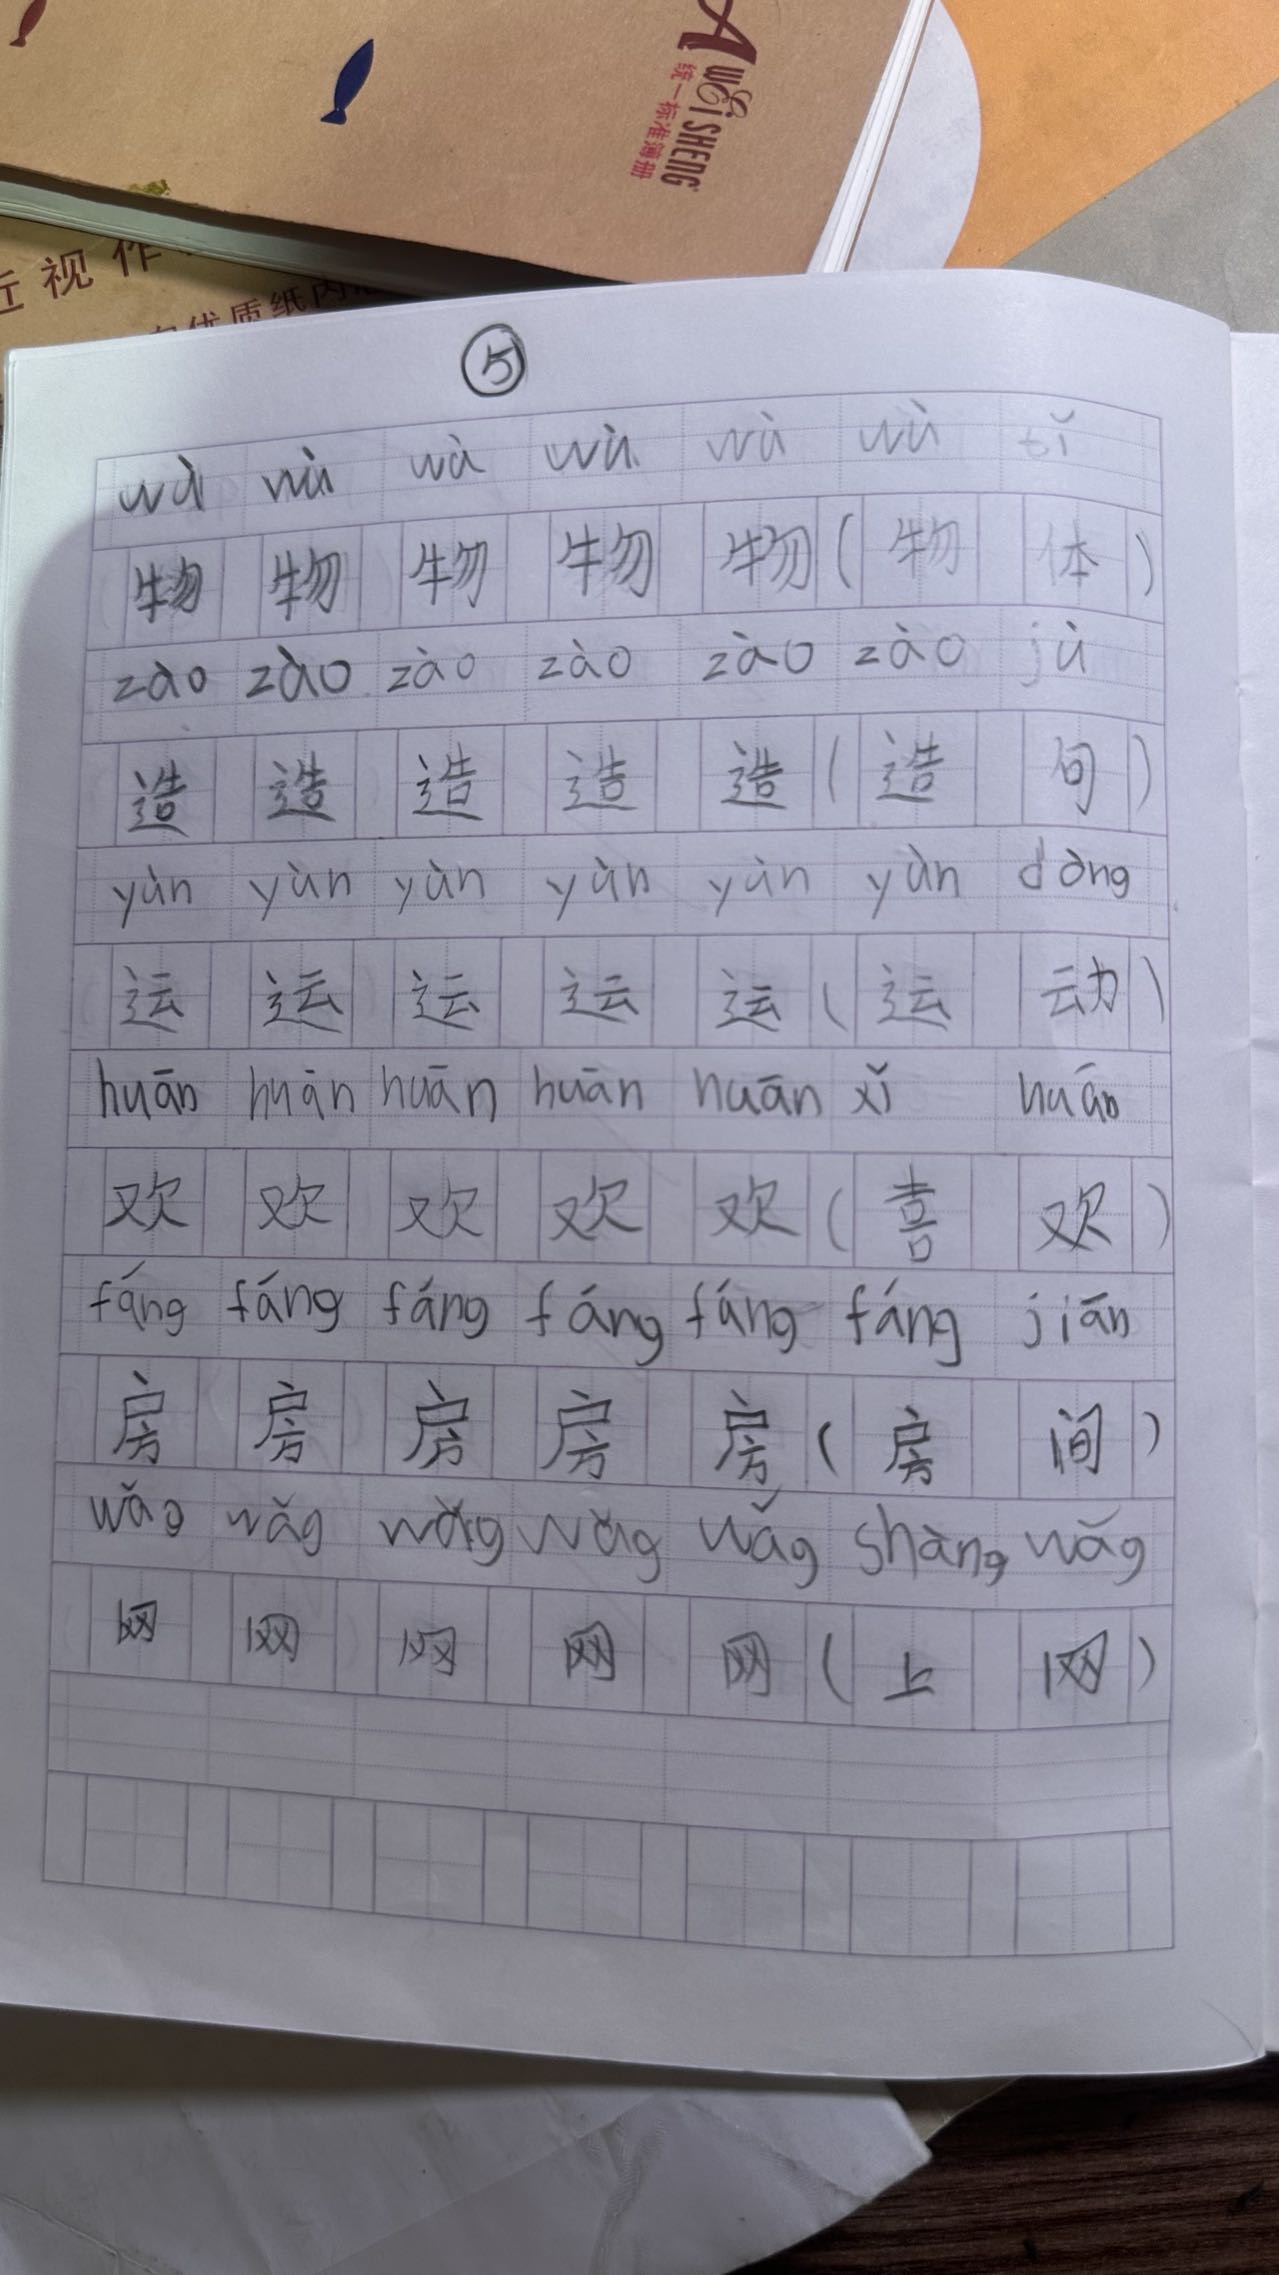 A WEiSHENG
统一标准簿册
近视作
优质纸内
5
wù wù wù wù wù wù tǐ
物 物 物 物 物 ( 物 体 )
zào zào zào zào zào zào jù
造 造 造 造 造 ( 造 句 )
yùn yùn yùn yùn yùn yùn dòng
运 运 运 运 运 ( 运 动 )
huān huān huān huān huān xǐ huān
欢 欢 欢 欢 欢 ( 喜 欢 )
fáng fáng fáng fáng fáng fáng jiān
房 房 房 房 房 ( 房 间 )
wǎg wǎg wǎg wǎg wǎg shàng wǎg
网 网 网 网 网 ( 上 网 )